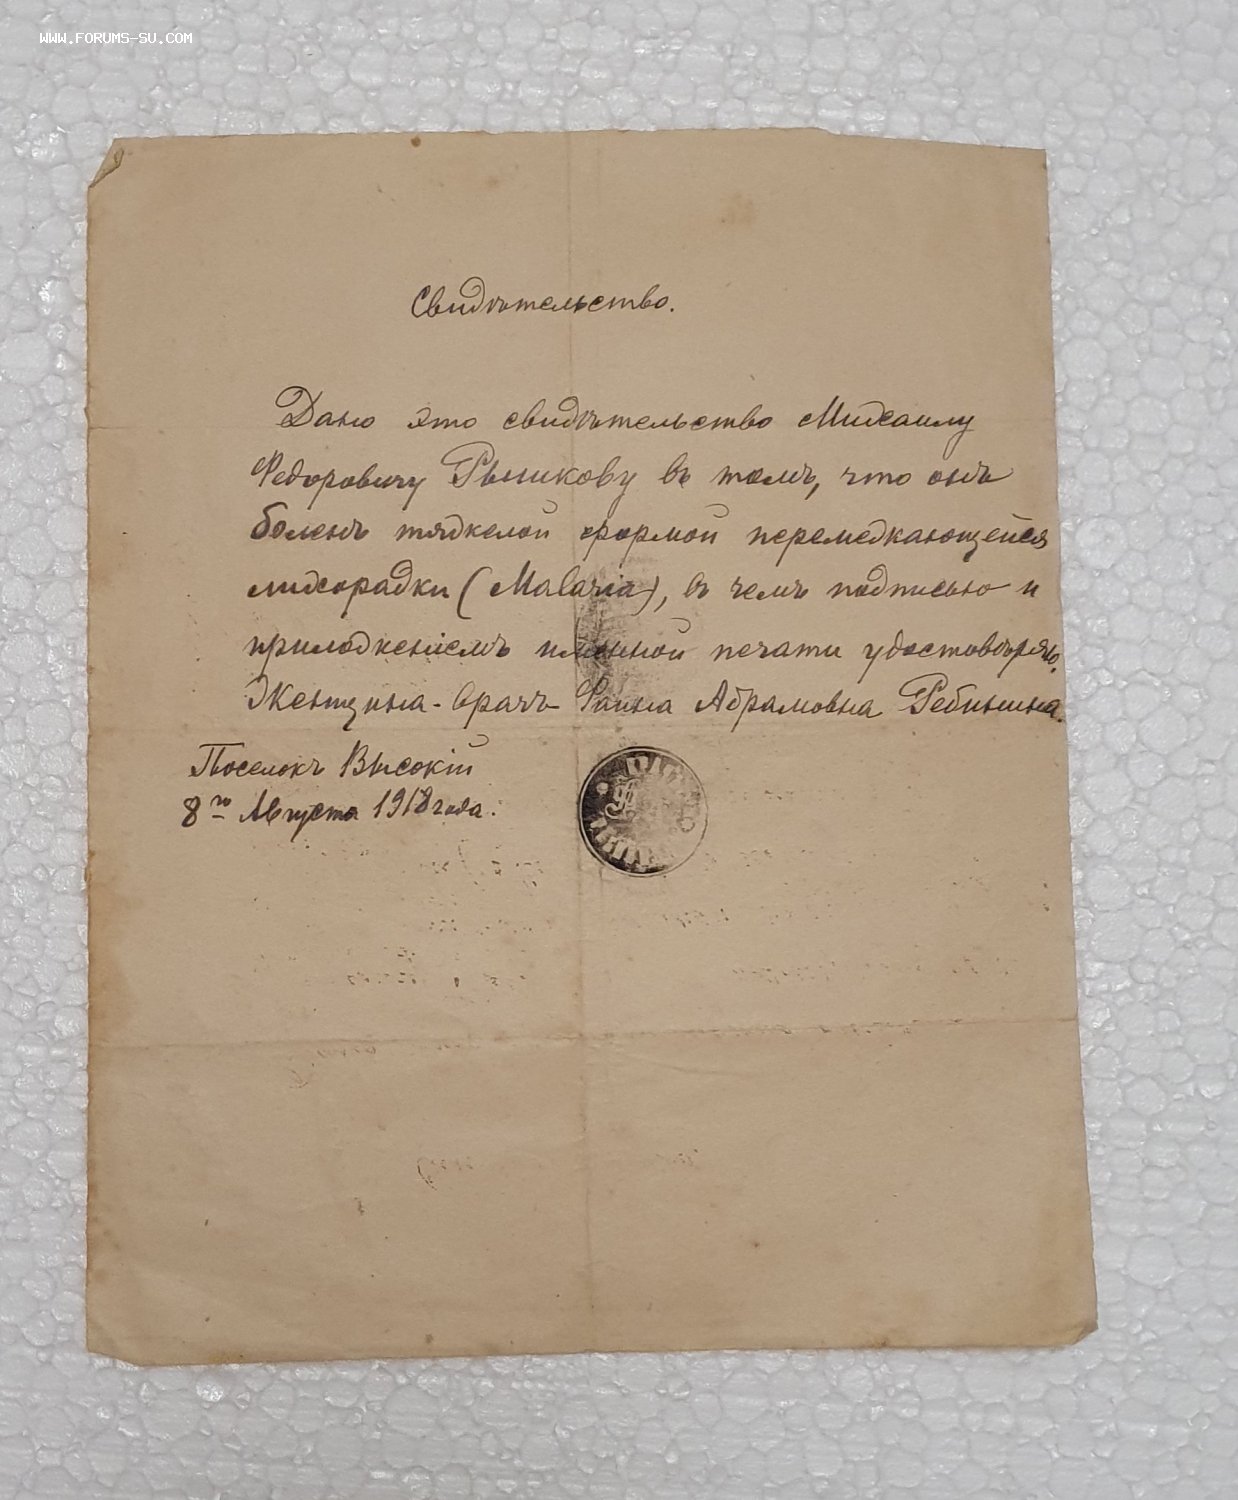 WWW.FORUMS-SU.COM
Свидѣтельство.
Дано это свидѣтельство Михаилу
Федоровичу Рышкову въ томъ, что онъ
боленъ тяжелой формой перемежающейся
лихорадки (Malaria), въ чемъ подписью и
приложеніемъ именной печати удостовѣряю.
Женщина-врачъ Фаина Абрамовна
Поселокъ Высокій
8го Августа 1918 года.